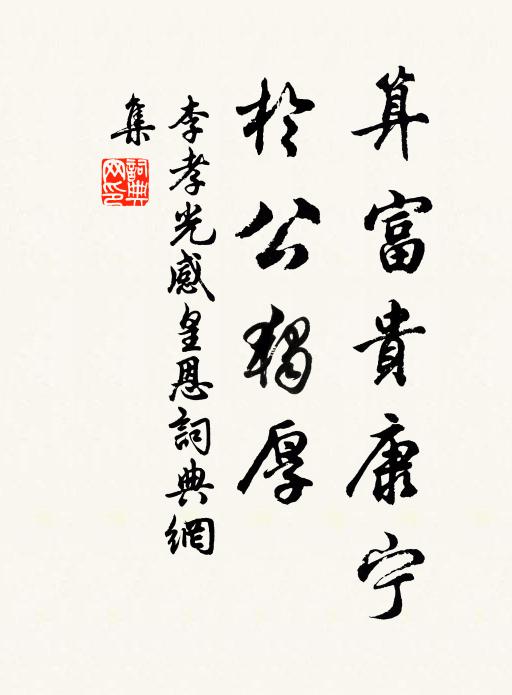 算富貴康宁
於公獨厚
李孝光感皇恩詞典網
集
詞典網印